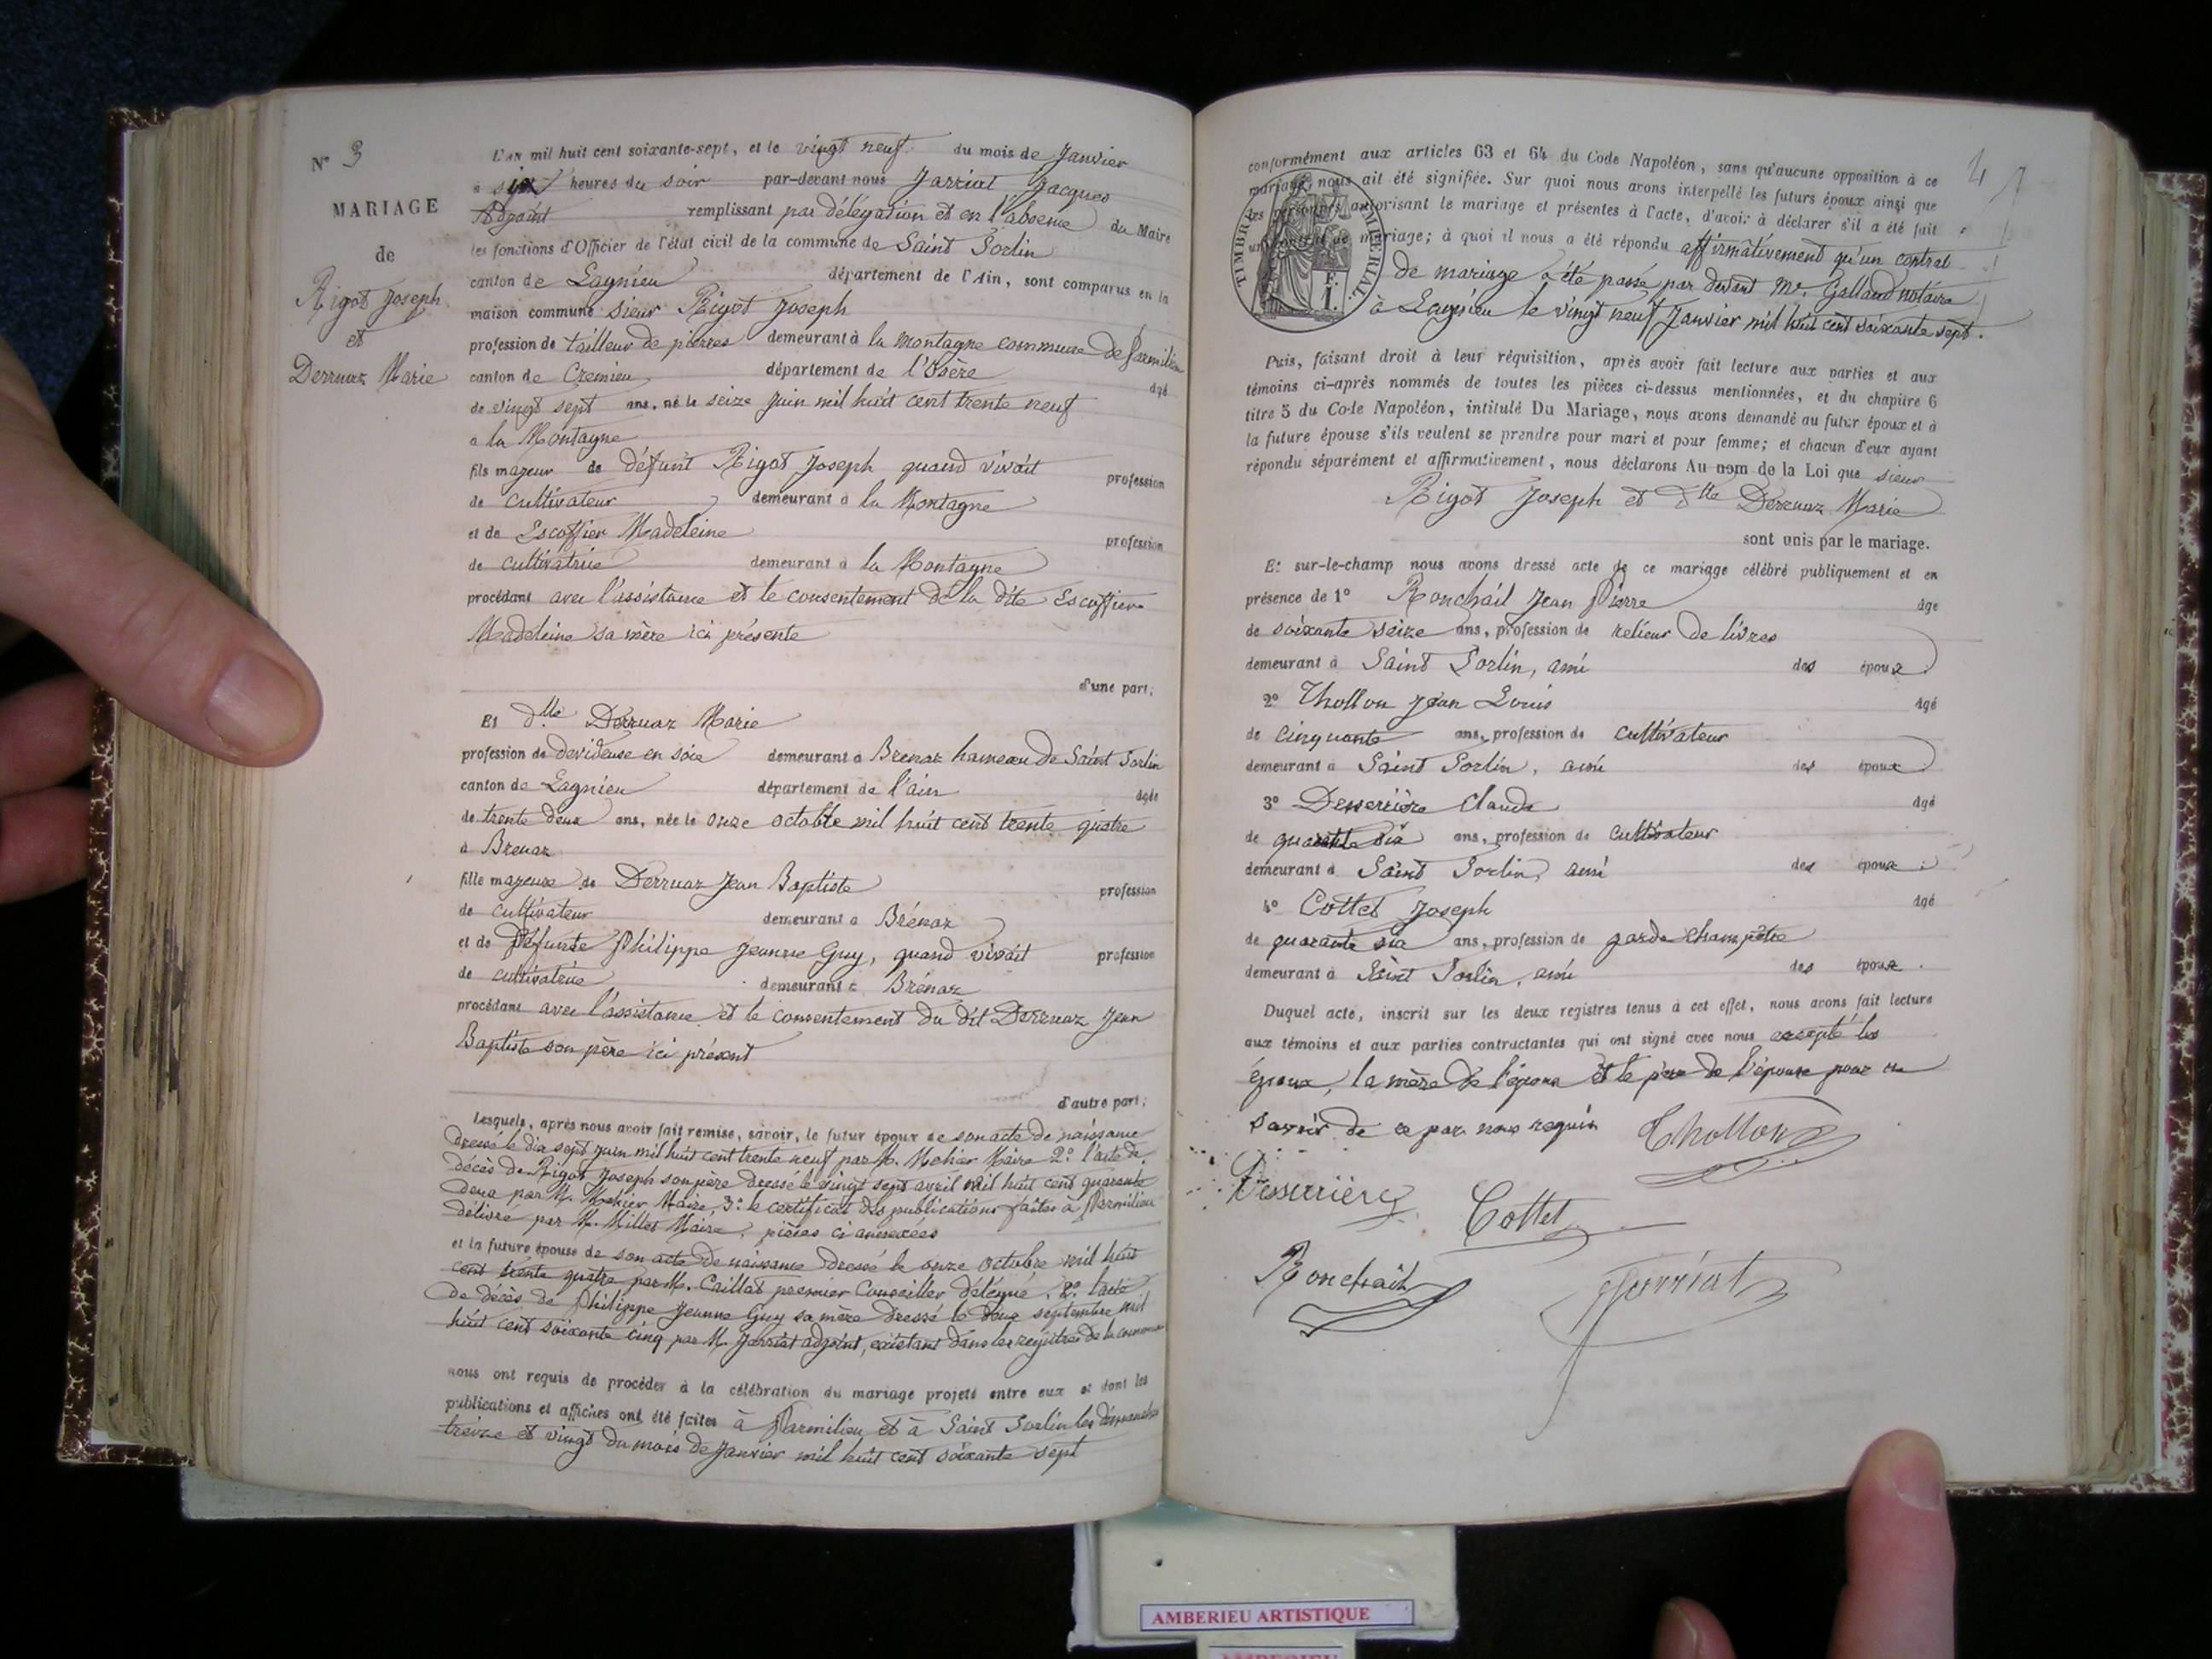 N° 3
MARIAGE
de
Rigot Joseph
et
Derruaz Marie
L'AN mil huit cent soixante-sept, et le vingt neuf du mois de Janvier
à six heures du soir par-devant nous Jarriat Jacques
Adjoint remplissant par délégation et en l'absence du Maire
les fonctions d'Officier de l'état civil de la commune de Saint Sorlin
canton de Lagnieu département de l'Ain, sont comparus en la
maison commune Sieur Rigot Joseph
profession de tailleur de pierres demeurant à la montagne commune de Parmilieu
canton de Cremieu département de l'Isère âgé
de vingt sept ans, né le seize Juin mil huit cent trente neuf
à la Montagne
fils majeur de défunt Rigot Joseph quand vivait profession
de cultivateur demeurant à la Montagne
et de Escoffier Madeleine profession
de cultivatrice demeurant à la Montagne
procédant avec l'assistance et le consentement de la dite Escoffier
Madeleine sa mère ici présente
d'une part;
Et dlle Derruaz Marie
profession de devideuse en soie demeurant à Brenaz hameau de Saint Sorlin
canton de Lagnieu département de l'ain âgée
de trente deux ans, née le onze octobre mil huit cent trente quatre
à Brenaz
fille majeure de Derruaz Jean Baptiste profession
de cultivateur demeurant à Brénaz
et de Défunte Philippe Jeanne Guy, quand vivait profession
de cultivatrice demeurant à Brénaz
procédant avec l'assistance et le consentement du dit Derruaz Jean
Baptiste son père ici présent
d'autre part;
Lesquels, après nous avoir fait remise, savoir, le futur époux de son acte de naissance
dressé le dix sept juin mil huit cent trente neuf par M. Maire 2° l'acte de
décès de Rigot Joseph son père dressé le vingt sept avril mil huit cent quarante
deux par M. Maire, 3° le certificat des publications faites à Parmilieu
délivré par M. Millet Maire, pièces ci annexées
et la future épouse de son acte de naissance dressé le onze octobre mil huit
cent trente quatre par M. Caillat premier Conseiller délégué, 2° l'acte
de décès de Philippe Jeanne Guy sa mère dressé le deux septembre mil
huit cent soixante cinq par M. Jarriat adjoint, existant dans les registres de la commune
nous ont requis de procéder à la célébration du mariage projeté entre eux et dont les
publications et affiches ont été faites à Parmilieu et à Saint Sorlin les dimanches
treize et vingt du mois de Janvier mil huit cent soixante sept
4
conformément aux articles 63 et 64 du Code Napoléon, sans qu'aucune opposition à ce
mariage nous ait été signifiée. Sur quoi nous avons interpellé les futurs époux ainsi que
les personnes autorisant le mariage et présentes à l'acte, d'avoir à déclarer s'il a été fait
un contrat de mariage; à quoi il nous a été répondu affirmativement qu'un contrat
de mariage a été passé par devant Me. Galland notaire
à Lagnieu le vingt neuf Janvier mil huit cent soixante sept.
TIMBRE IMPÉRIAL
F. I.
Puis, faisant droit à leur réquisition, après avoir fait lecture aux parties et aux
témoins ci-après nommés de toutes les pièces ci-dessus mentionnées, et du chapitre 6
titre 5 du Code Napoléon, intitulé Du Mariage, nous avons demandé au futur époux et à
la future épouse s'ils veulent se prendre pour mari et pour femme; et chacun d'eux ayant
répondu séparément et affirmativement, nous déclarons Au nom de la Loi que sieur
Rigot Joseph et dlle Derruaz Marie
sont unis par le mariage.
Et sur-le-champ nous avons dressé acte de ce mariage célébré publiquement et en
présence de 1° Ronchail Jean Pierre âgé
de soixante seize ans, profession de relieur de livres
demeurant à Saint Sorlin, ami des époux
2° Thollon Jean Louis âgé
de cinquante ans, profession de cultivateur
demeurant à Saint Sorlin, ami des époux
3° Desserrière Claude âgé
de quarante six ans, profession de cultivateur
demeurant à Saint Sorlin, ami des époux
4° Cottet Joseph âgé
de quarante six ans, profession de garde champêtre
demeurant à Saint Sorlin, ami des époux.
Duquel acte, inscrit sur les deux registres tenus à cet effet, nous avons fait lecture
aux témoins et aux parties contractantes qui ont signé avec nous excepté les
époux, la mère de l'époux et le père de l'épouse pour ne
savoir de ce par nous requis Thollon
Desserrière Cottet
Ronchail Jarriat
AMBERIEU ARTISTIQUE
AMBERIEU